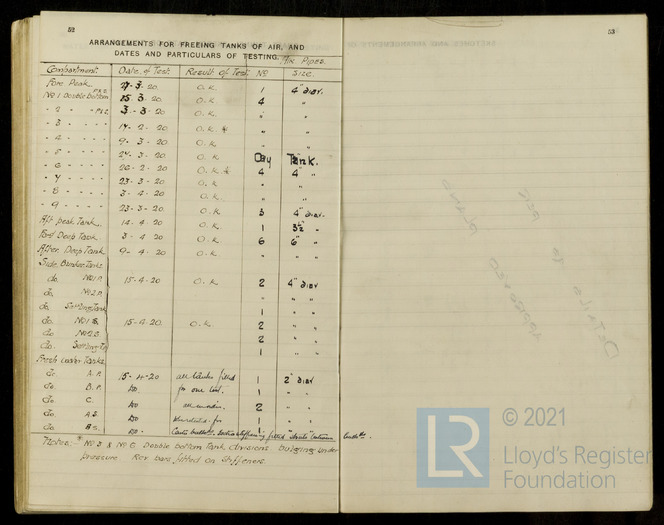 52
ARRANGEMENTS FOR FREEING TANKS OF AIR, AND
DATES AND PARTICULARS OF TESTING.
Air Pipes.
Compartment. Date of Test. Result of Test. No Size.
Fore Peak 27-3-20 O.K. 1 4" diar.
No 1 Double Bottom P&S 25-3-20 O.K. 4 "
" 2 " " P&S 3-3-20 O.K. " "
" 3 " " 17-2-20 O.K * " "
" 4 " " 9-3-20 O.K. " "
" 5 " " 24-3-20 O.K. Dry Tank.
" 6 " " 26-2-20 O.K * 4 4" "
" 7 " " 23-3-20 O.K. " "
" 8 " " 3-4-20 O.K. " "
" 9 " " 23-3-20 O.K. 3 4" diar.
Aft peak Tank. 14-4-20 O.K. 1 3½ "
Ford Deep Tank 3-4-20 O.K. 6 6" "
After. Deep Tank 9-4-20 O.K. " "
Side Bunker Tanks
do. No 1 P. 15-4-20 O.K. 2 4" diar
do. No 2 P. " "
do. Settling Tank 1 "
do. No 1 S. 15-4-20 O.K. 2 "
do. No 2 S. 2 "
do. Settling Tk 1 "
Fresh Water Tanks
do. A.P. 15-4-20 all tanks filled 1 2" diar
do. B.P. do for one test. 1 "
do. C. do 2 "
do. A.S. do 1 "
do. B.S. do. 1 "
Notes:- * No 3 & No 6 Double bottom Tank divisions bulging under
pressure. Rov bars fitted on Stiffeners.
53
© 2021
LR
Lloyd's Register
Foundation